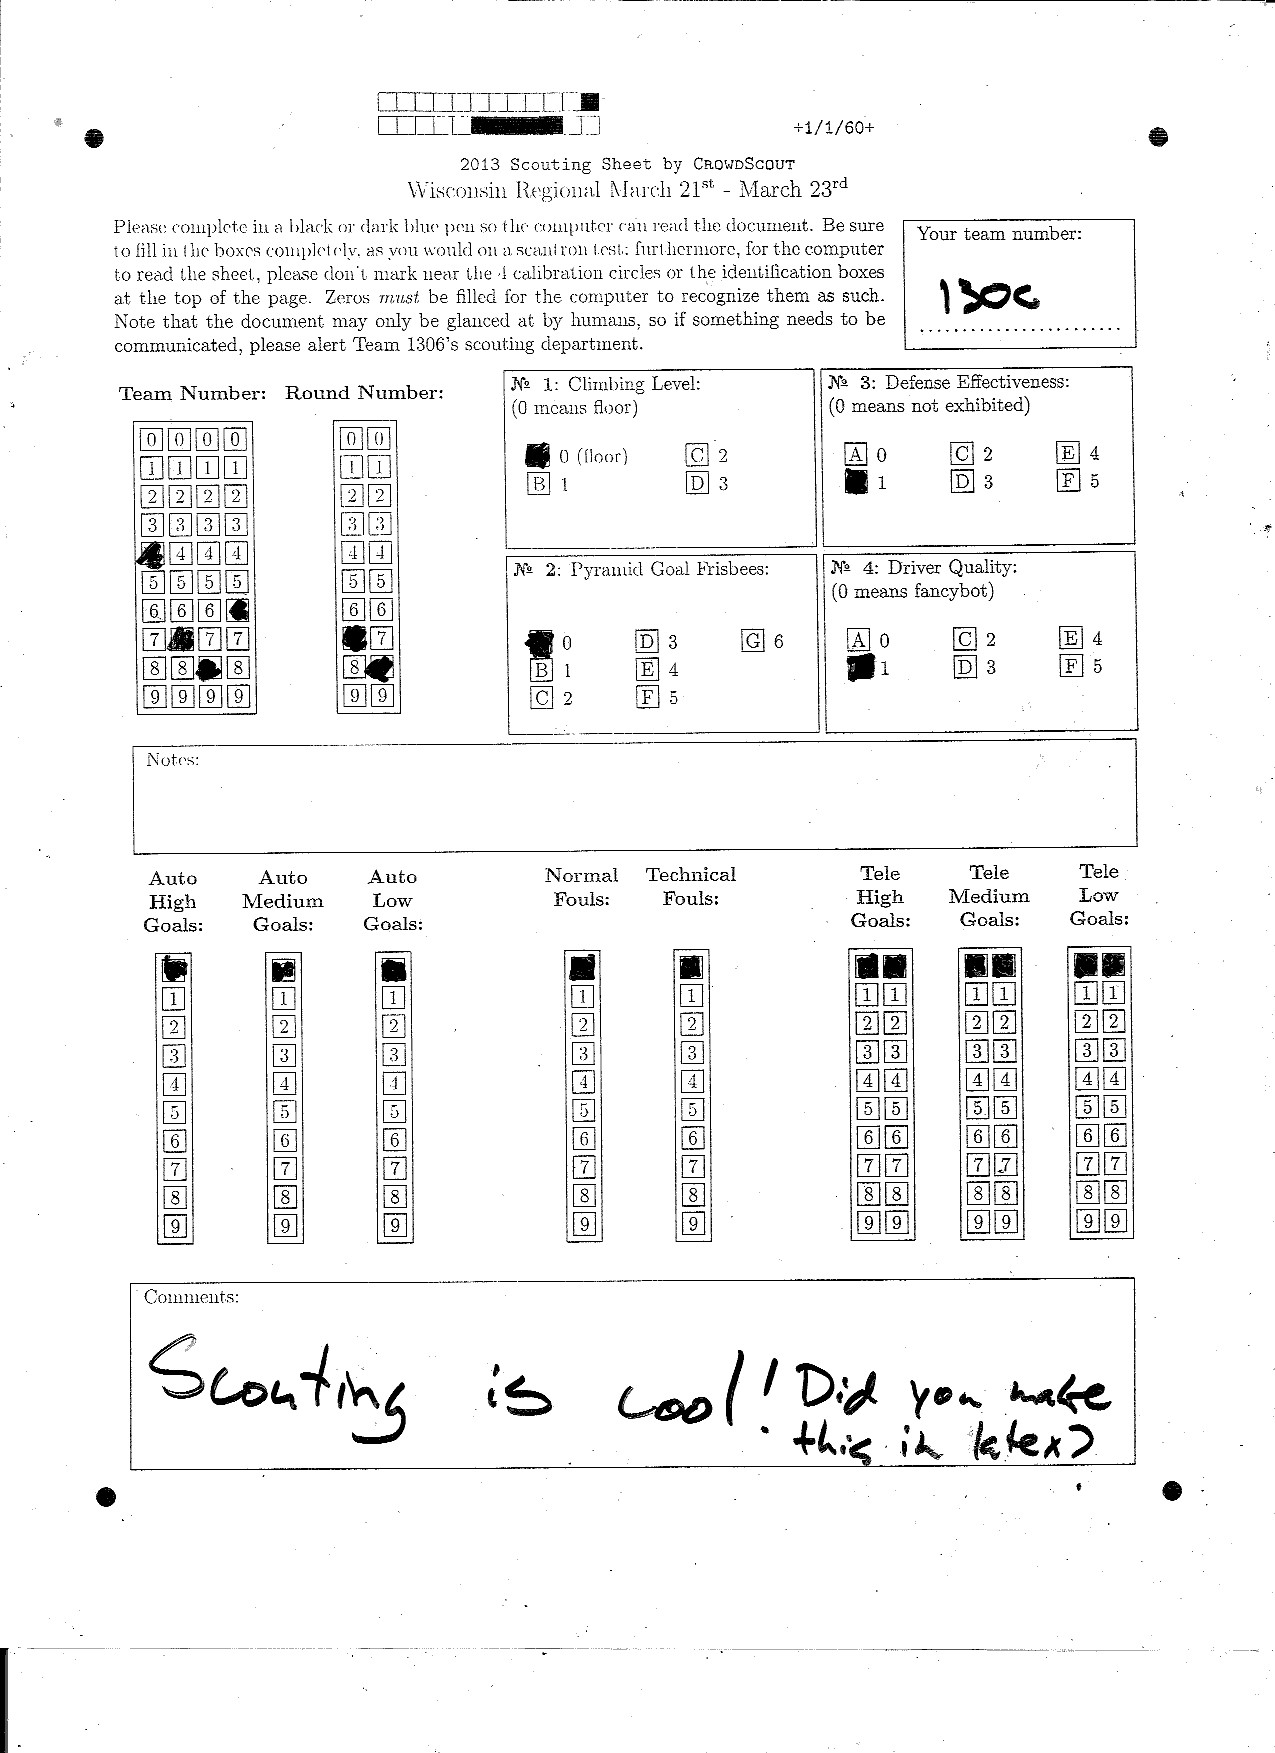 +1/1/60+
2013 Scouting Sheet by CROWDSCOUT
Wisconsin Regional March 21st - March 23rd
Please complete in a black or dark blue pen so the computer can read the document. Be sure
to fill in the boxes completely, as you would on a scantron test; furthermore, for the computer
to read the sheet, please don't mark near the 4 calibration circles or the identification boxes
at the top of the page. Zeros must be filled for the computer to recognize them as such.
Note that the document may only be glanced at by humans, so if something needs to be
communicated, please alert Team 1306's scouting department.
Your team number:
1306
Team Number: Round Number:
0 0 0 0 0 0
1 1 1 1 1 1
2 2 2 2 2 2
3 3 3 3 3 3
4 4 4 4 4
5 5 5 5 5 5
6 6 6 6 6
7 7 7 7
8 8 8 8
9 9 9 9 9 9
№ 1: Climbing Level:
(0 means floor)
0 (floor) C 2
B 1 D 3
№ 3: Defense Effectiveness:
(0 means not exhibited)
A 0 C 2 E 4
1 D 3 F 5
№ 2: Pyramid Goal Frisbees:
0 D 3 G 6
B 1 E 4
C 2 F 5
№ 4: Driver Quality:
(0 means fancybot)
A 0 C 2 E 4
1 D 3 F 5
Notes:
Auto Auto Auto Normal Technical Tele Tele Tele
High Medium Low Fouls: Fouls: High Medium Low
Goals: Goals: Goals: Goals: Goals: Goals:
1 1 1 1 1 1 1 1 1 1 1
2 2 2 2 2 2 2 2 2 2 2
3 3 3 3 3 3 3 3 3 3 3
4 4 4 4 4 4 4 4 4 4 4
5 5 5 5 5 5 5 5 5 5 5
6 6 6 6 6 6 6 6 6 6 6
7 7 7 7 7 7 7 7 7 7 7
8 8 8 8 8 8 8 8 8 8 8
9 9 9 9 9 9 9 9 9 9 9
Comments:
Scouting is cool! Did you make
this in latex?